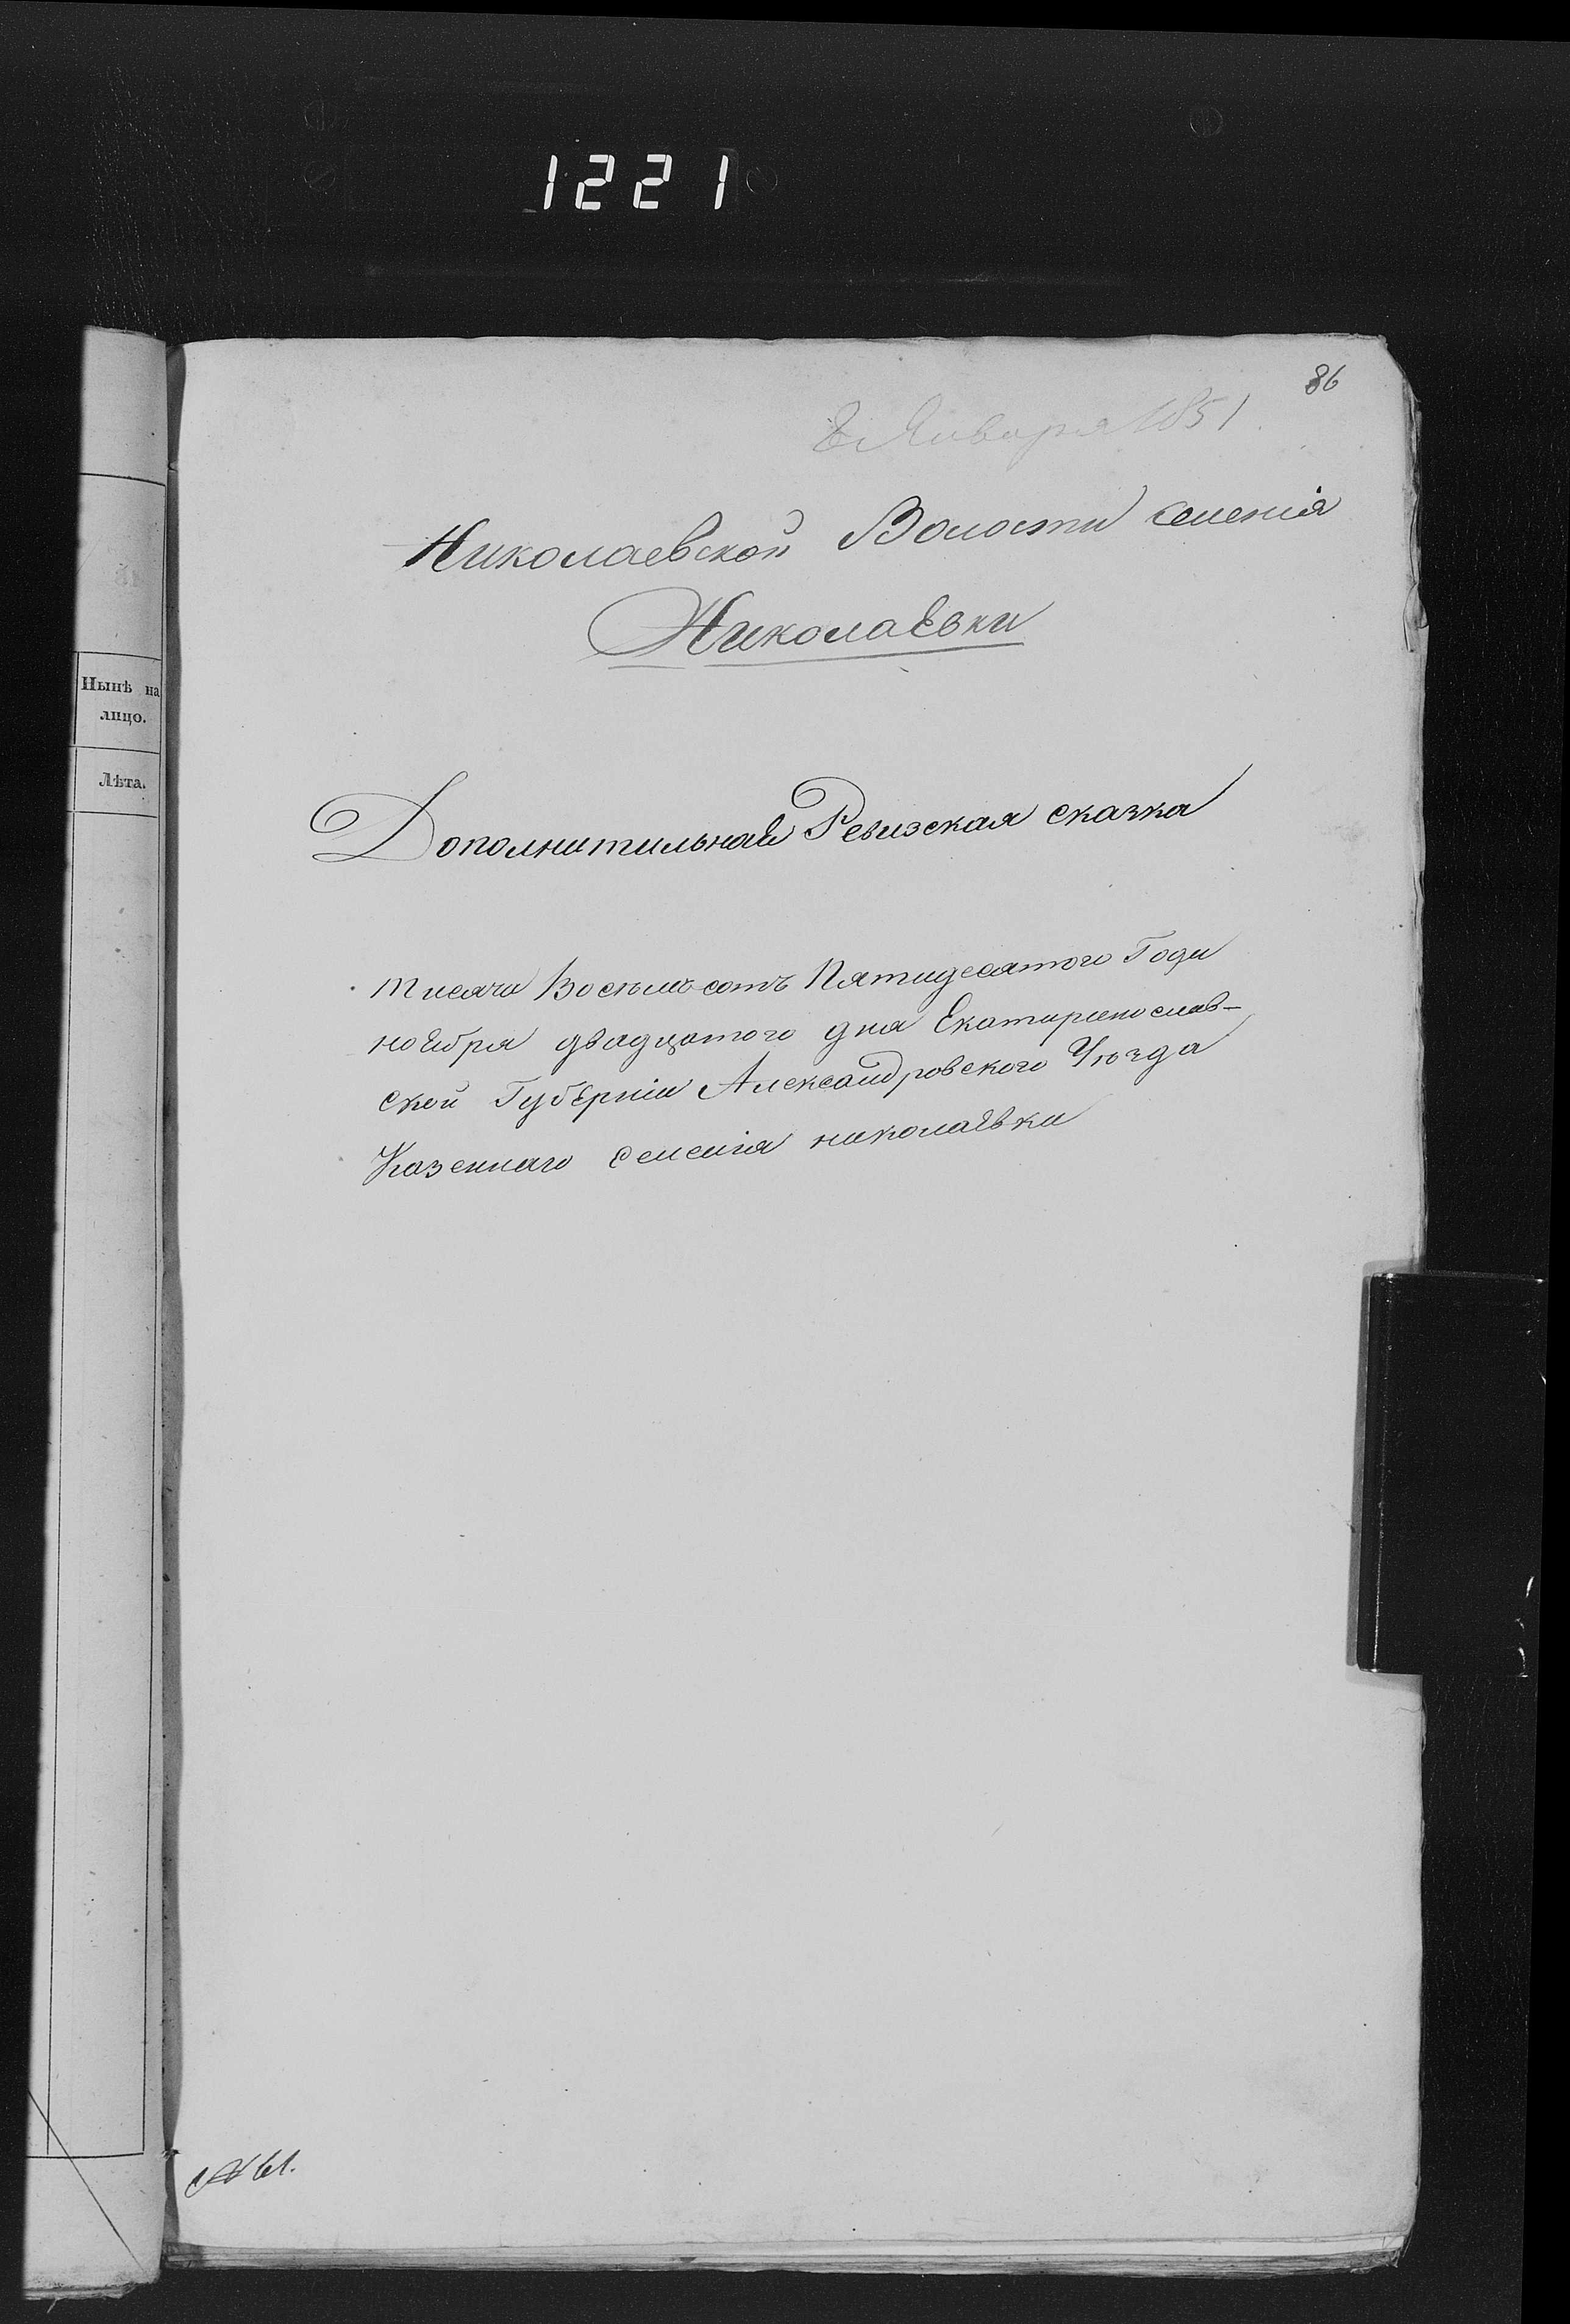 1221
86
8 Января 1851
Николаевской Волости селенія
Николаевки
Нынѣ на
лицо.
Лѣта.
Дополнитильная Ревизская сказка
тисяча Восемъсотъ Пятидесятого Года
ноебря двадцатого дня Екатиринослав-
ской Губерніи Александровского Уѣзда
Казеннаго селенія николаевки
№ 61.